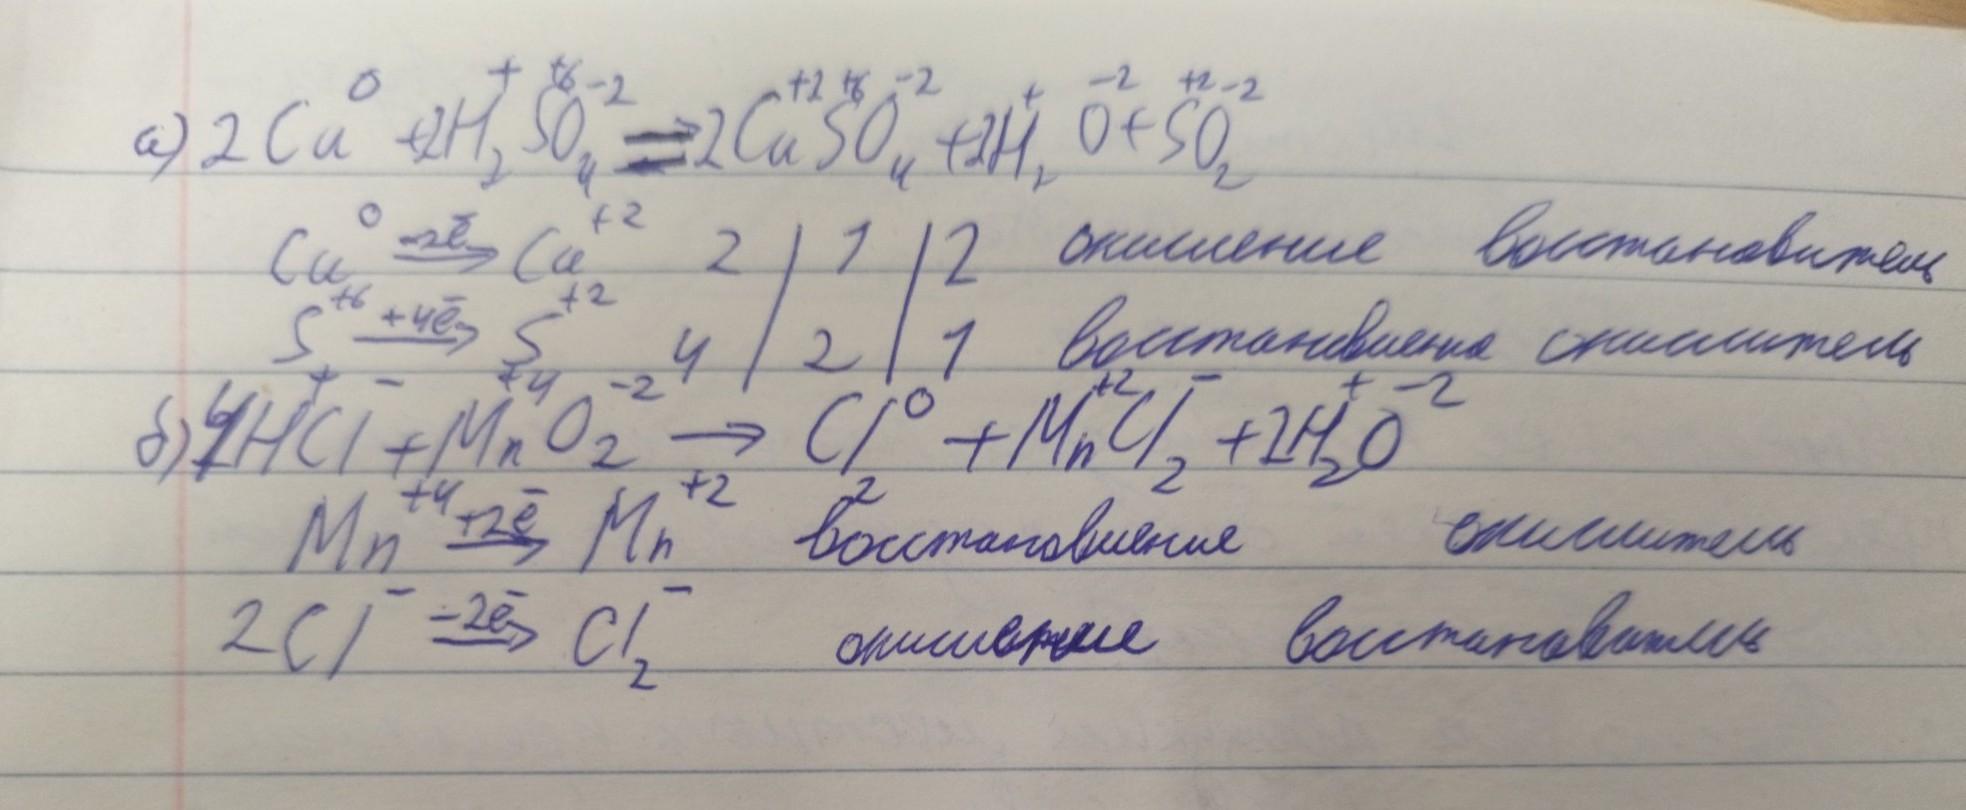 а) 2Cu⁰ + 2H₂⁺S⁺⁶O₄⁻² ⇒ 2Cu⁺²S⁺⁶O₄⁻² + 2H₂⁺O⁻² + S⁺²O₂⁻²
Cu⁰ -2ē→ Cu⁺² 2 / 1 / 2 окисление восстановитель
S⁺⁶ +4ē→ S⁺² 4 / 2 / 1 восстановление окислитель
б) 4H⁺Cl⁻ + Mn⁺⁴O₂⁻² → Cl₂⁰ + Mn⁺²Cl₂⁻ + 2H₂⁺O⁻²
Mn⁺⁴ +2ē→ Mn⁺² восстановление окислитель
2Cl⁻ -2ē→ Cl₂⁻ окисление восстановитель